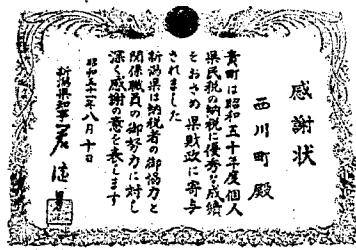 感謝状
西川町殿
貴町は昭和五十年度個人
県民税の納税に優秀な成績
をおさめ県財政に寄与
されました
新潟県は納税者の御協力と
関係職員の御努力に対し
深く感謝の意を表します
昭和五十一年八月十日
新潟県知事 君 健男